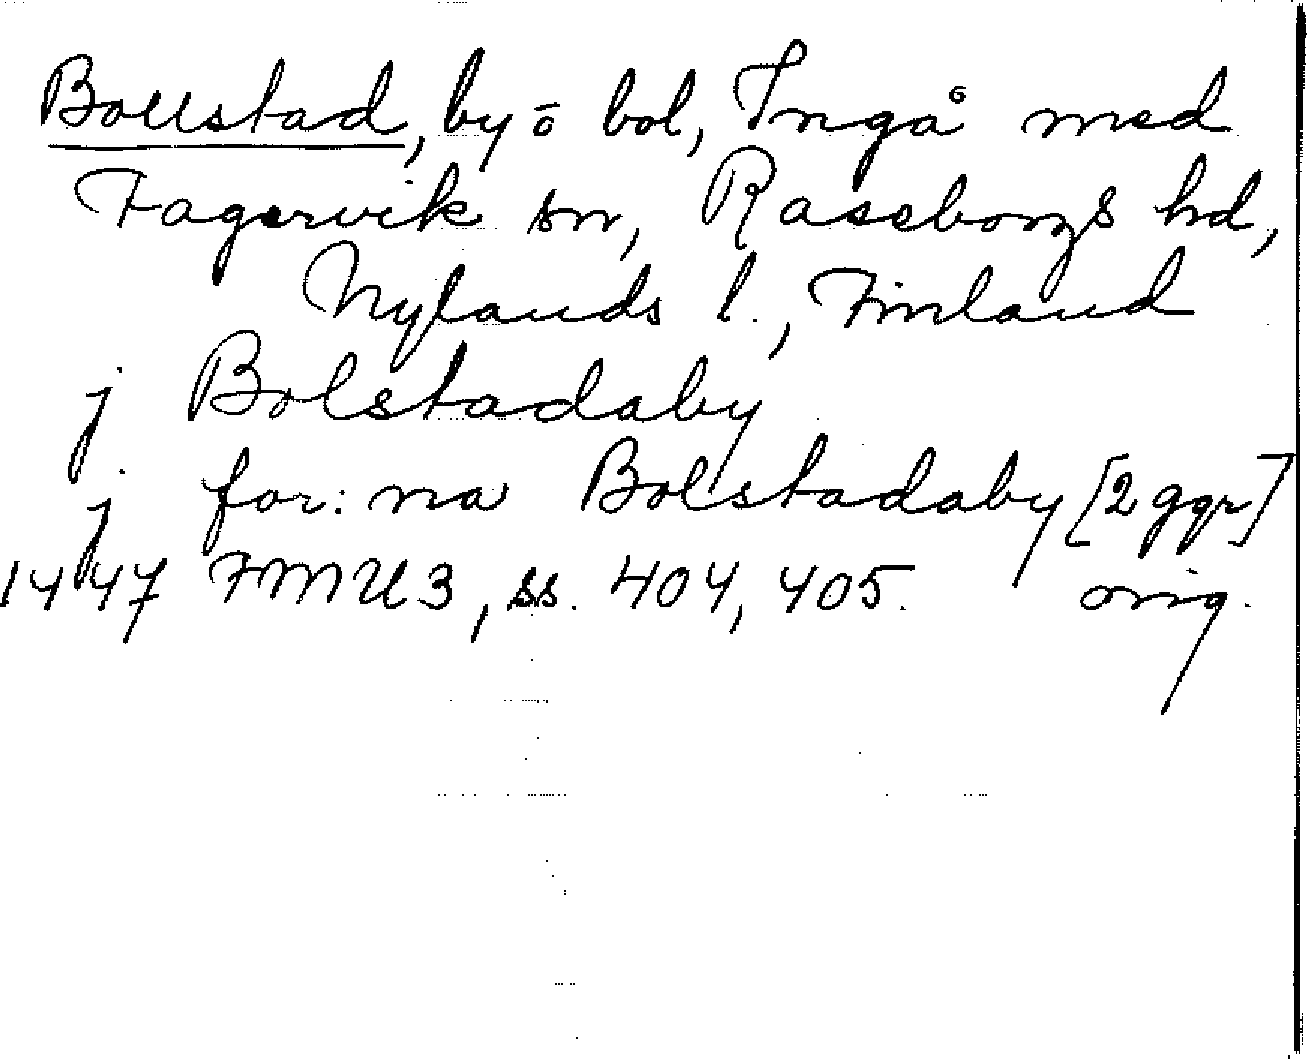 Bollstad, by ō bol, Ingå med
Fagervik sn, Raseborgs hd,
Nylands l., Finland
j Bolstadaby
j for: na Bolstadaby [2 ggr]
1447 FMU 3, ss. 404, 405. orig.